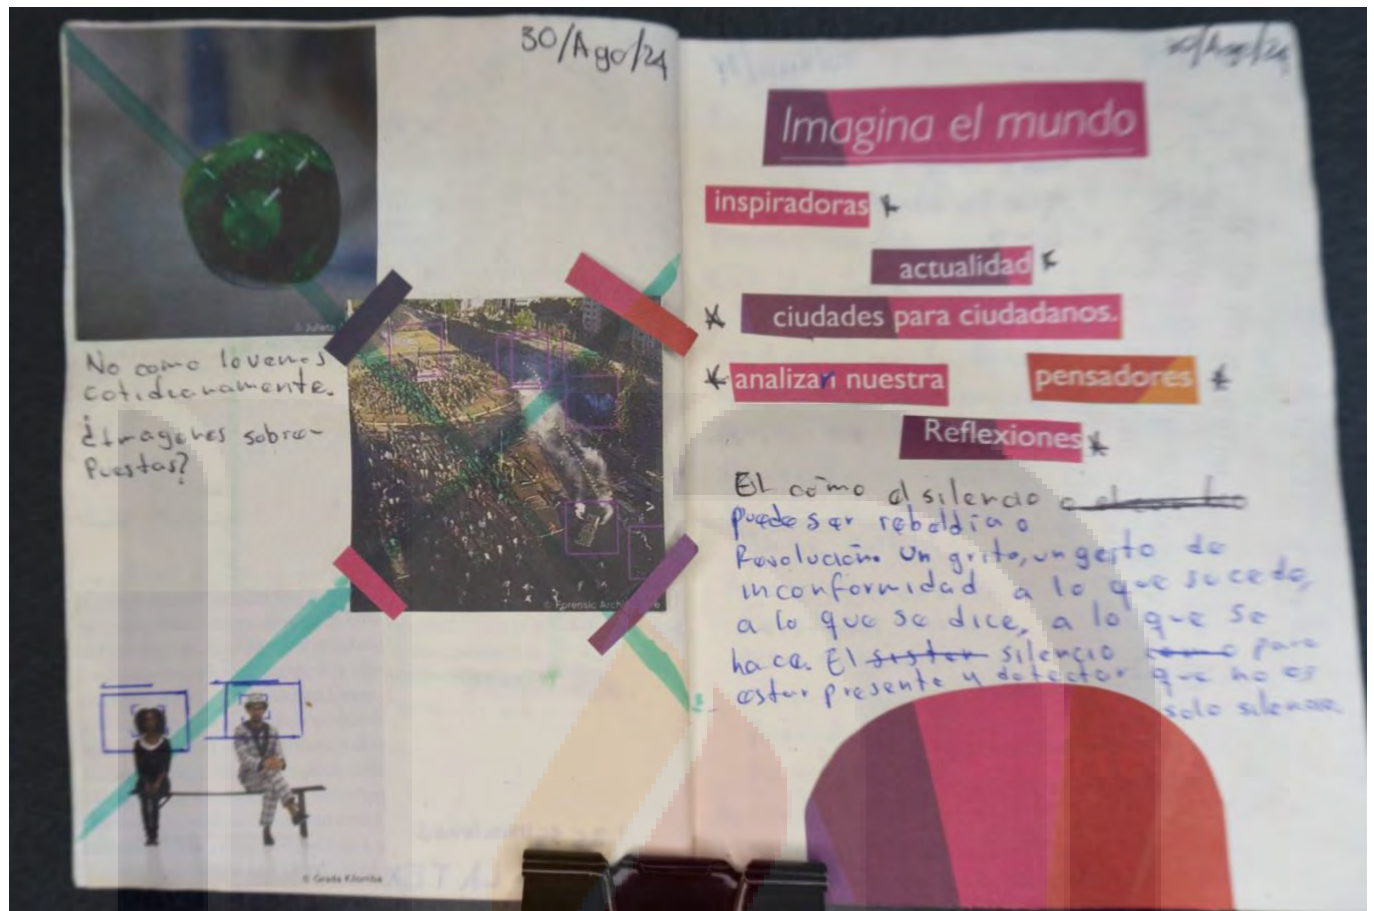 30/Ago/24
© Julieta
No como lo vemos
cotidianamente.
¿Imagenes sobre-
puestas?
© Forensic Architecture
© Grada Kilomba
30/Ago/24
Imagina el mundo
inspiradoras *
actualidad *
* ciudades para ciudadanos.
* analizan nuestra
pensadores *
Reflexiones *
El cómo el silencio o
puede ser rebeldía o
Revolución. Un grito, un gesto de
inconformidad a lo que sucede,
a lo que se dice, a lo que se
hace. El silencio para
estar presente y detectar que no es
solo silencio.